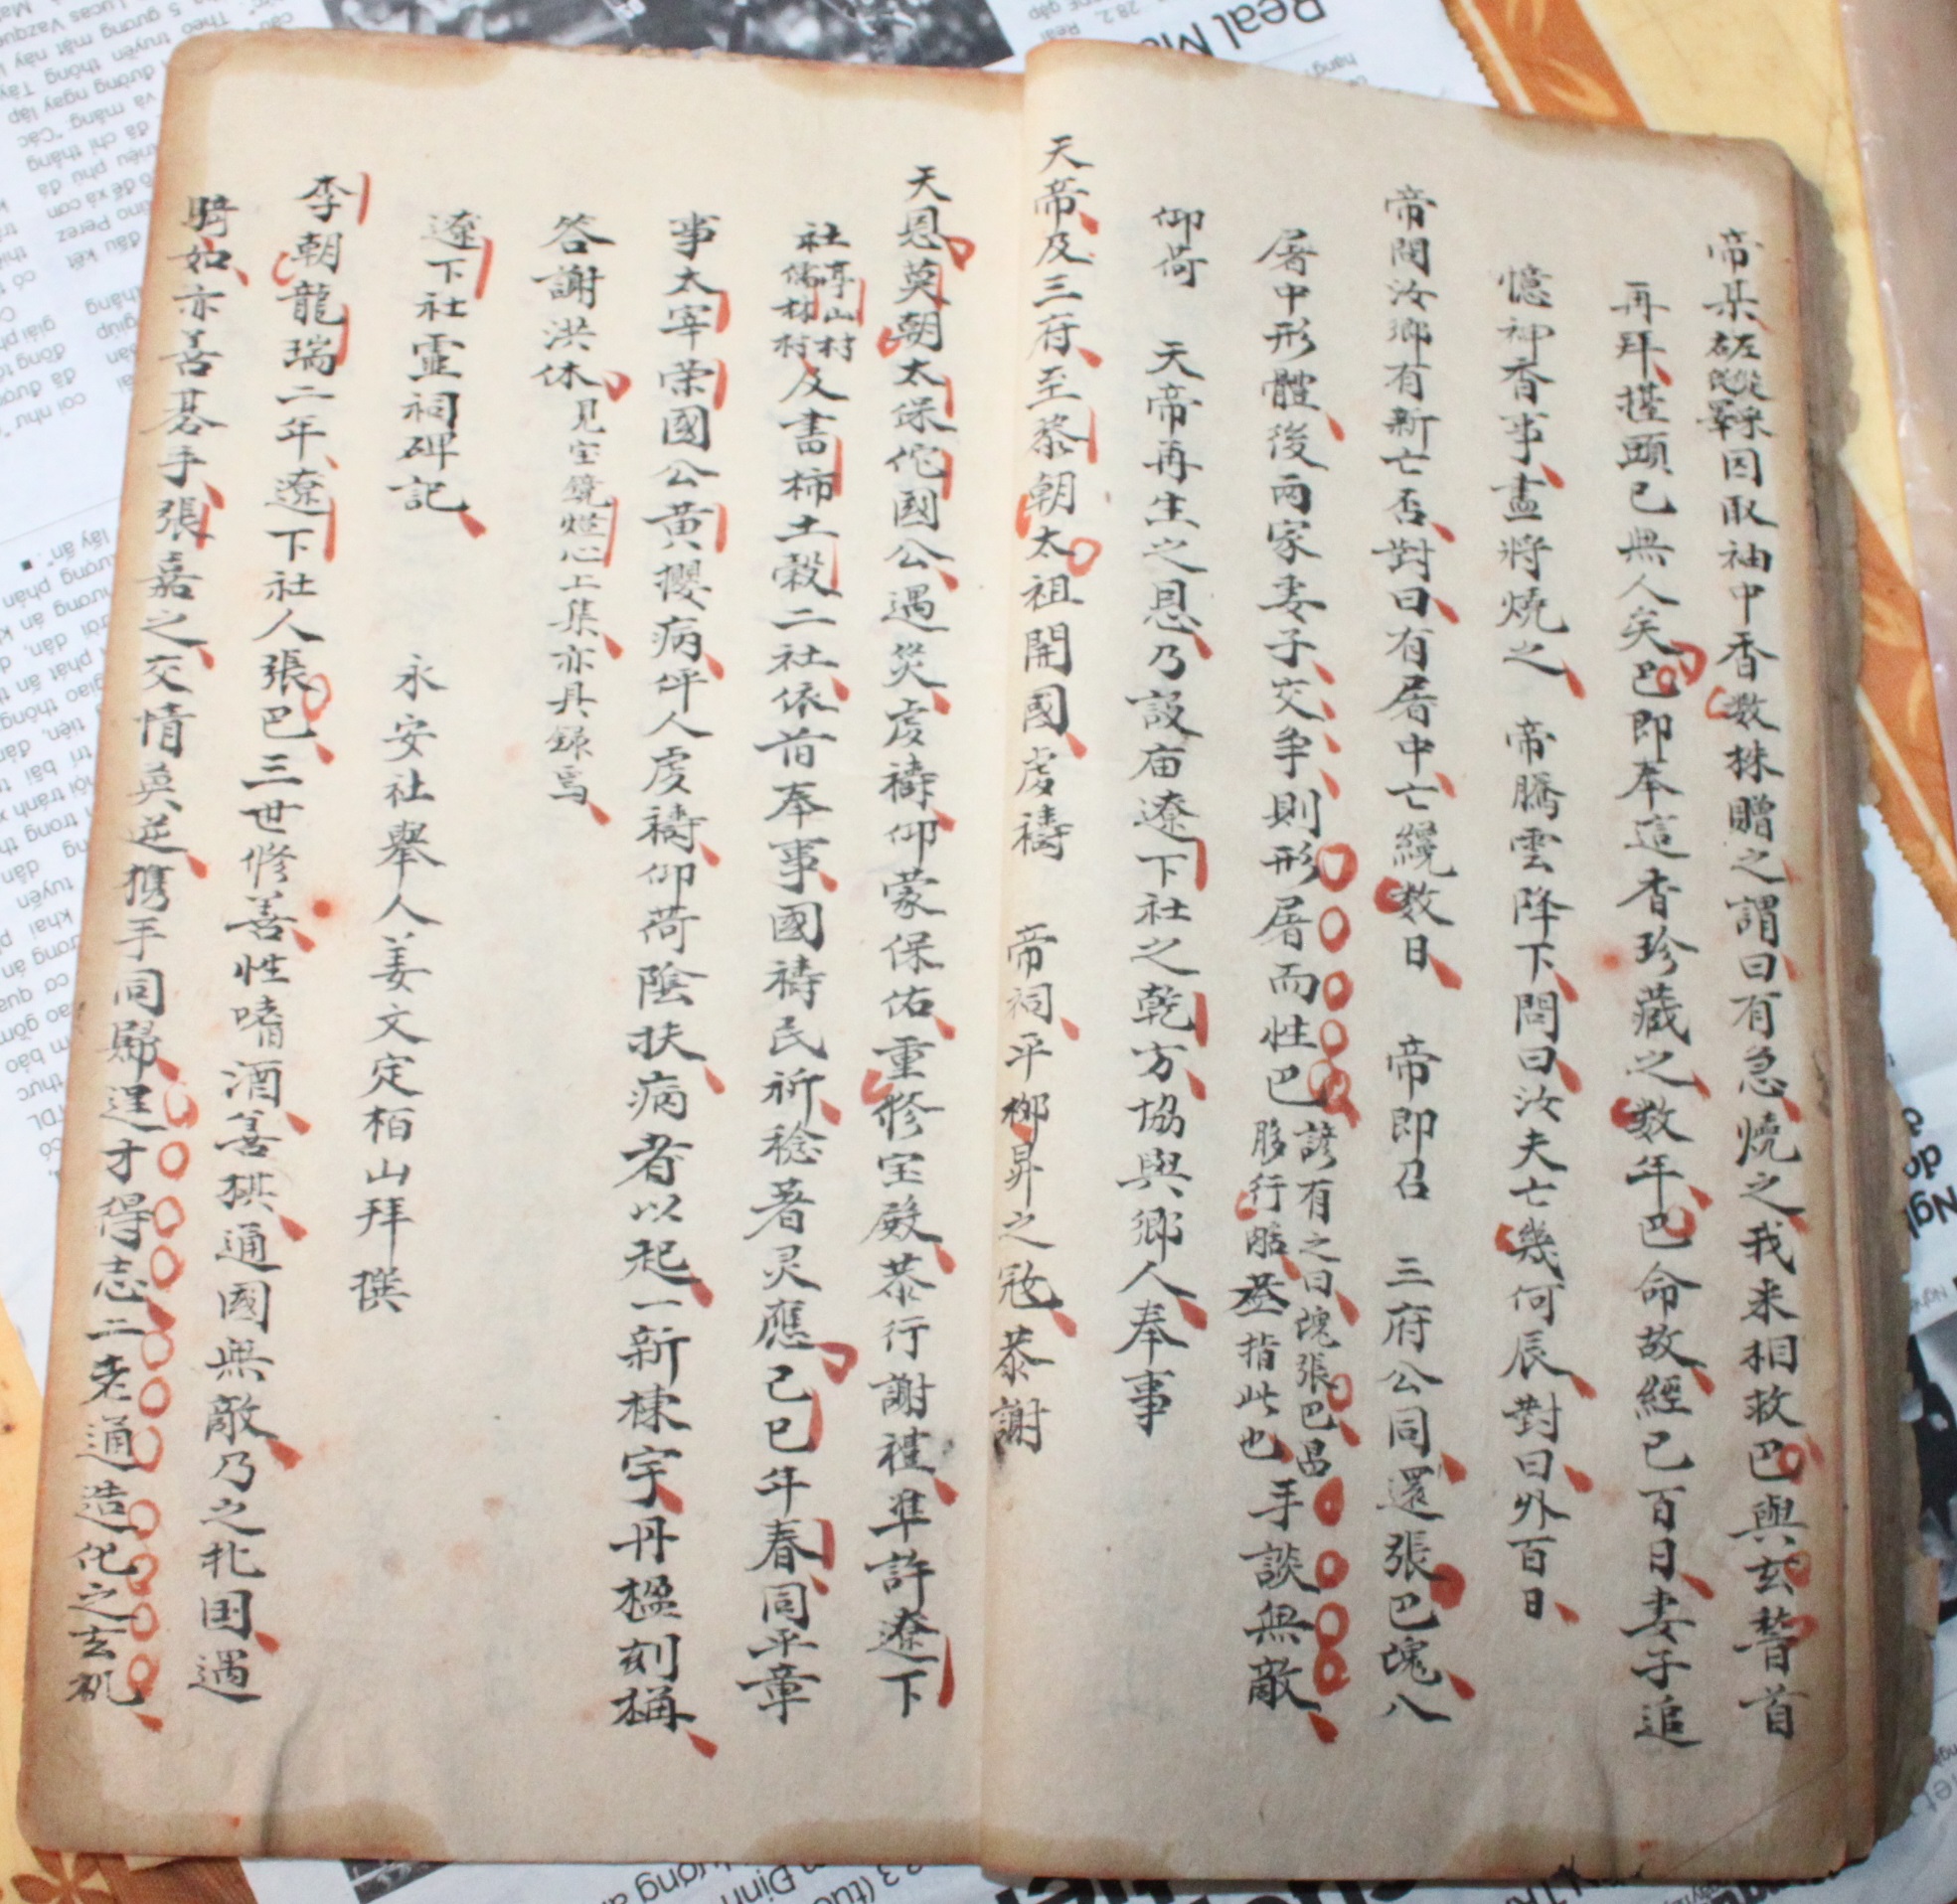 帝某因取袖中香数株贈之謂曰有急燒之我来相救巴與玄警首
再拜擡頭已無人矣巴即奉這香珍藏之数年巴命故經已百日妻子追
憶神香事盡將燒之 帝騰雲降下問曰汝夫亡幾何辰對曰外百日
帝問汝鄉有新亡否對曰有屠中亡纔数日 帝即召 三府公同還張巴塊入
屠中形體後兩家妻子交争則形屠而性巴 諺有之曰塊張巴昌䏧行䣭盖指此也 手談無敵
仰荷 天帝再生之恩乃設庙遼下社之乾方協與鄉人奉事
天帝及三府至黎朝太祖開國虔禱 帝祠平柳昇之寇恭謝
天恩莫朝太保佗國公遇災虔禱仰蒙保佑重修宝殿恭行謝禮準許遼下
社亭山村儒林村及書柿土穀二社依前奉事國禱民祈稔著灵應己巳年春同平章
事太宰荣國公黄攖病伻人虔禱仰荷陰扶病者以起一新棟宇丹楹刻桷
答謝洪休見宝鏡燈心上集亦具録焉
遼下社靈祠碑記
永安社舉人姜文定栢山拜撰
李朝龍瑞二年遼下社人張巴三世修善性嗜酒善棋通國無敵乃之北国遇
騎如亦善碁手張嘉之交情莫逆携手同歸逞才得志二老通造化之玄机